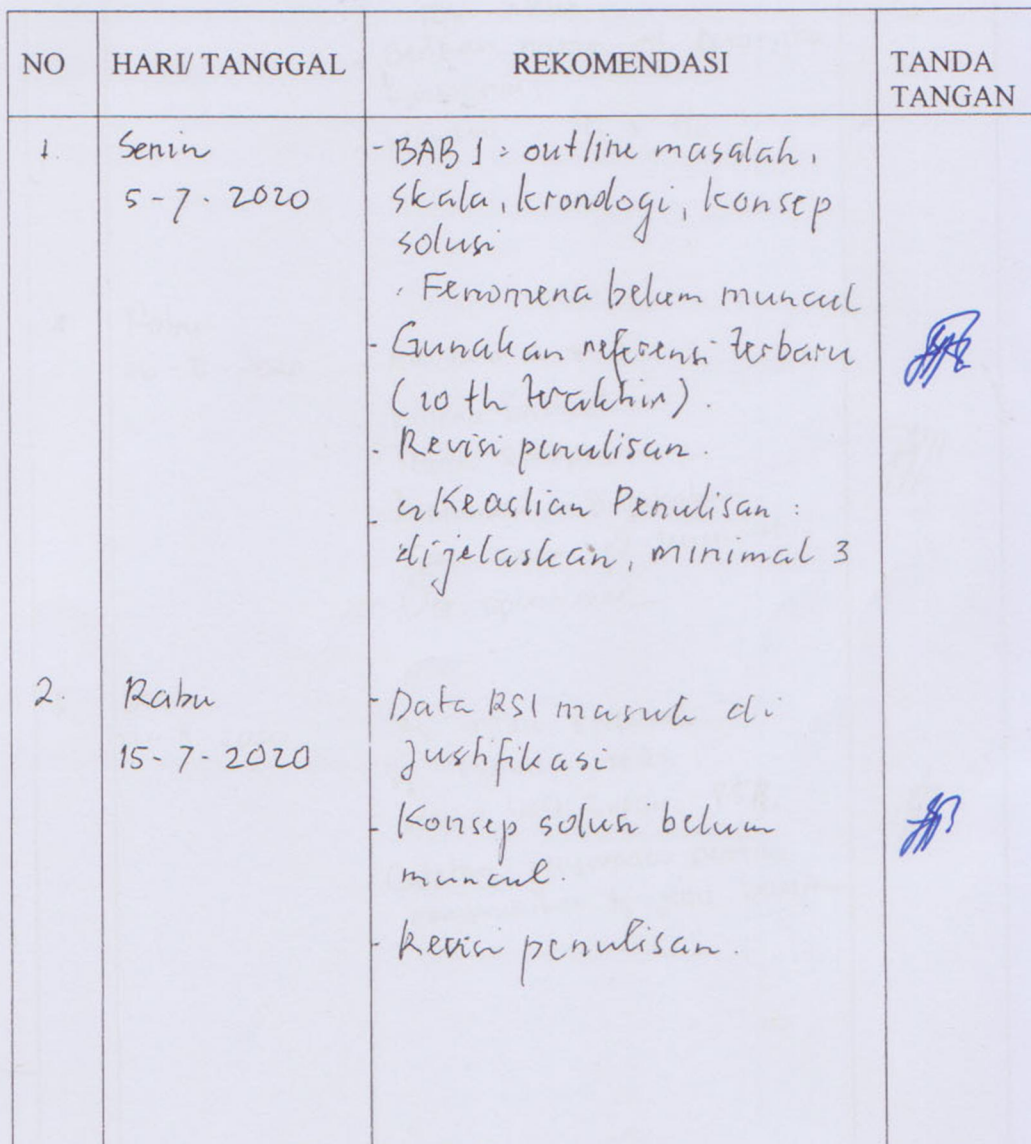 NO HARI/ TANGGAL REKOMENDASI TANDA TANGAN
1. Senin - BAB 1 : outline masalah,
5-7-2020 skala, kronologi, konsep
solusi
. Fenomena belum muncul
- Gunakan referensi terbaru
(10 th terakhir).
- Revisi penulisan.
- Keaslian Penulisan :
dijelaskan, minimal 3
2. Rabu - Data RSI masuk di
15-7-2020 Justifikasi
- Konsep solusi belum
muncul.
- Revisi penulisan.